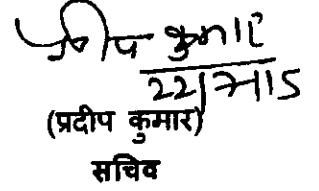 प्रदीप कुमार
22/7/15
(प्रदीप कुमार)
सचिव